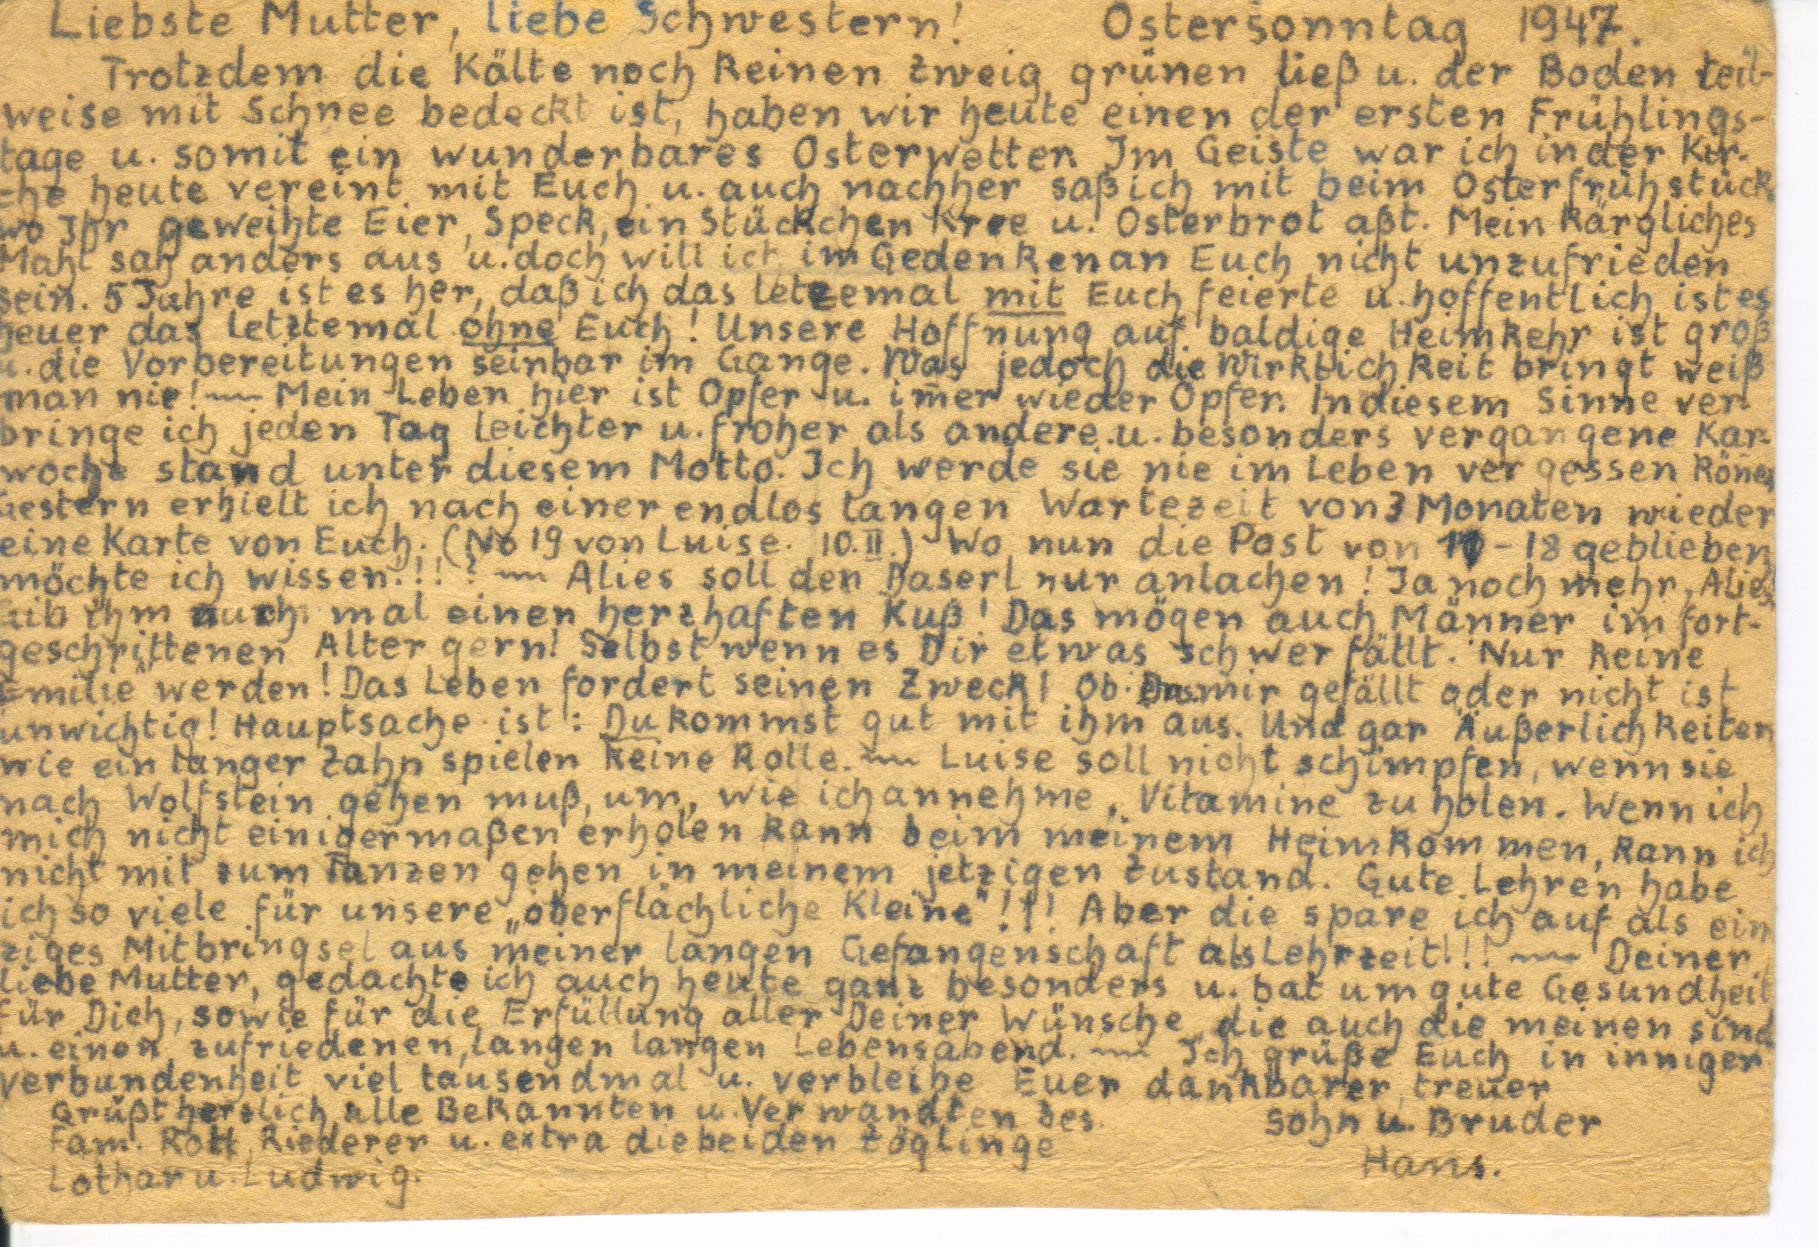 Liebste Mutter, liebe Schwestern! Ostersonntag 1947.
Trotzdem die Kälte noch keinen Zweig grünen ließ u. der Boden teil-
weise mit Schnee bedeckt ist, haben wir heute einen der ersten Frühlings-
tage u. somit ein wunderbares Osterwetter. Im Geiste war ich in der Kir-
che heute vereint mit Euch u. auch nachher saß ich mit beim Osterfrühstück
wo Ihr geweihte Eier, Speck, ein Stückchen Kree u. Osterbrot aßt. Mein kärgliches
Mahl sah anders aus u. doch will ich im Gedenken an Euch nicht unzufrieden
sein. 5 Jahre ist es her, daß ich das letztemal mit Euch feierte u. hoffentlich ist es
heuer das letztemal ohne Euch! Unsere Hoffnung auf baldige Heimkehr ist groß
u. die Vorbereitungen seinbar im Gange. Was jedoch die Wirklichkeit bringt weiß
man nie! — Mein Leben hier ist Opfer u. im̄er wieder Opfer. In diesem Sinne ver-
bringe ich jeden Tag leichter u. froher als andere u. besonders vergangene Kar-
woche stand unter diesem Motto. Ich werde sie nie im Leben vergessen kön̄en
Gestern erhielt ich nach einer endlos langen Wartezeit von 3 Monaten wieder
eine Karte von Euch. (No 19 von Luise. 10.II.) Wo nun die Post von - 18 geblieben
möchte ich wissen!!! — Alies soll den Baserl nur anlachen! Ja noch mehr, Alies
Gib ihm auch mal einen herzhaften Kuß! Das mögen auch Männer im fort-
geschrittenen Alter gern! Selbst wenn es Dir etwas schwer fällt. Nur keine
"Emilie" werden! Das Leben fordert seinen Zweck! Ob mir gefällt oder nicht ist
unwichtig! Hauptsache ist: Du kommst gut mit ihm aus. Und gar Äußerlichkeiten
wie ein langer Zahn spielen keine Rolle. — Luise soll nicht schimpfen, wenn sie
nach Wolfstein gehen muß, um, wie ich annehme, Vitamine zu holen. Wenn ich
mich nicht einigermaßen erholen kann beim meinem Heimkommen, kann ich
nicht mit zum Tanzen gehen in meinem jetzigen Zustand. Gute Lehren habe
ich so viele für unsere „oberflächliche Kleine"!!! Aber die spare ich auf als ein
ziges Mitbringsel aus meiner langen Gefangenschaft als Lehrzeit!!! — Deiner,
liebe Mutter, gedachte ich auch heute ganz besonders u. bat um gute Gesundheit
für Dich, sowie für die Erfüllung aller Deiner Wünsche, die auch die meinen sind
u. einen zufriedenen, langen langen Lebensabend. — Ich grüße Euch in inniger
Verbundenheit viel tausendmal u. verbleibe Euer dankbarer, treuer
Grüßt herzlich alle Bekannten u. Verwandten bes. Sohn u. Bruder
Fam. Rott, Riederer u. extra die beiden Zöglinge Hans.
Lothar u. Ludwig.